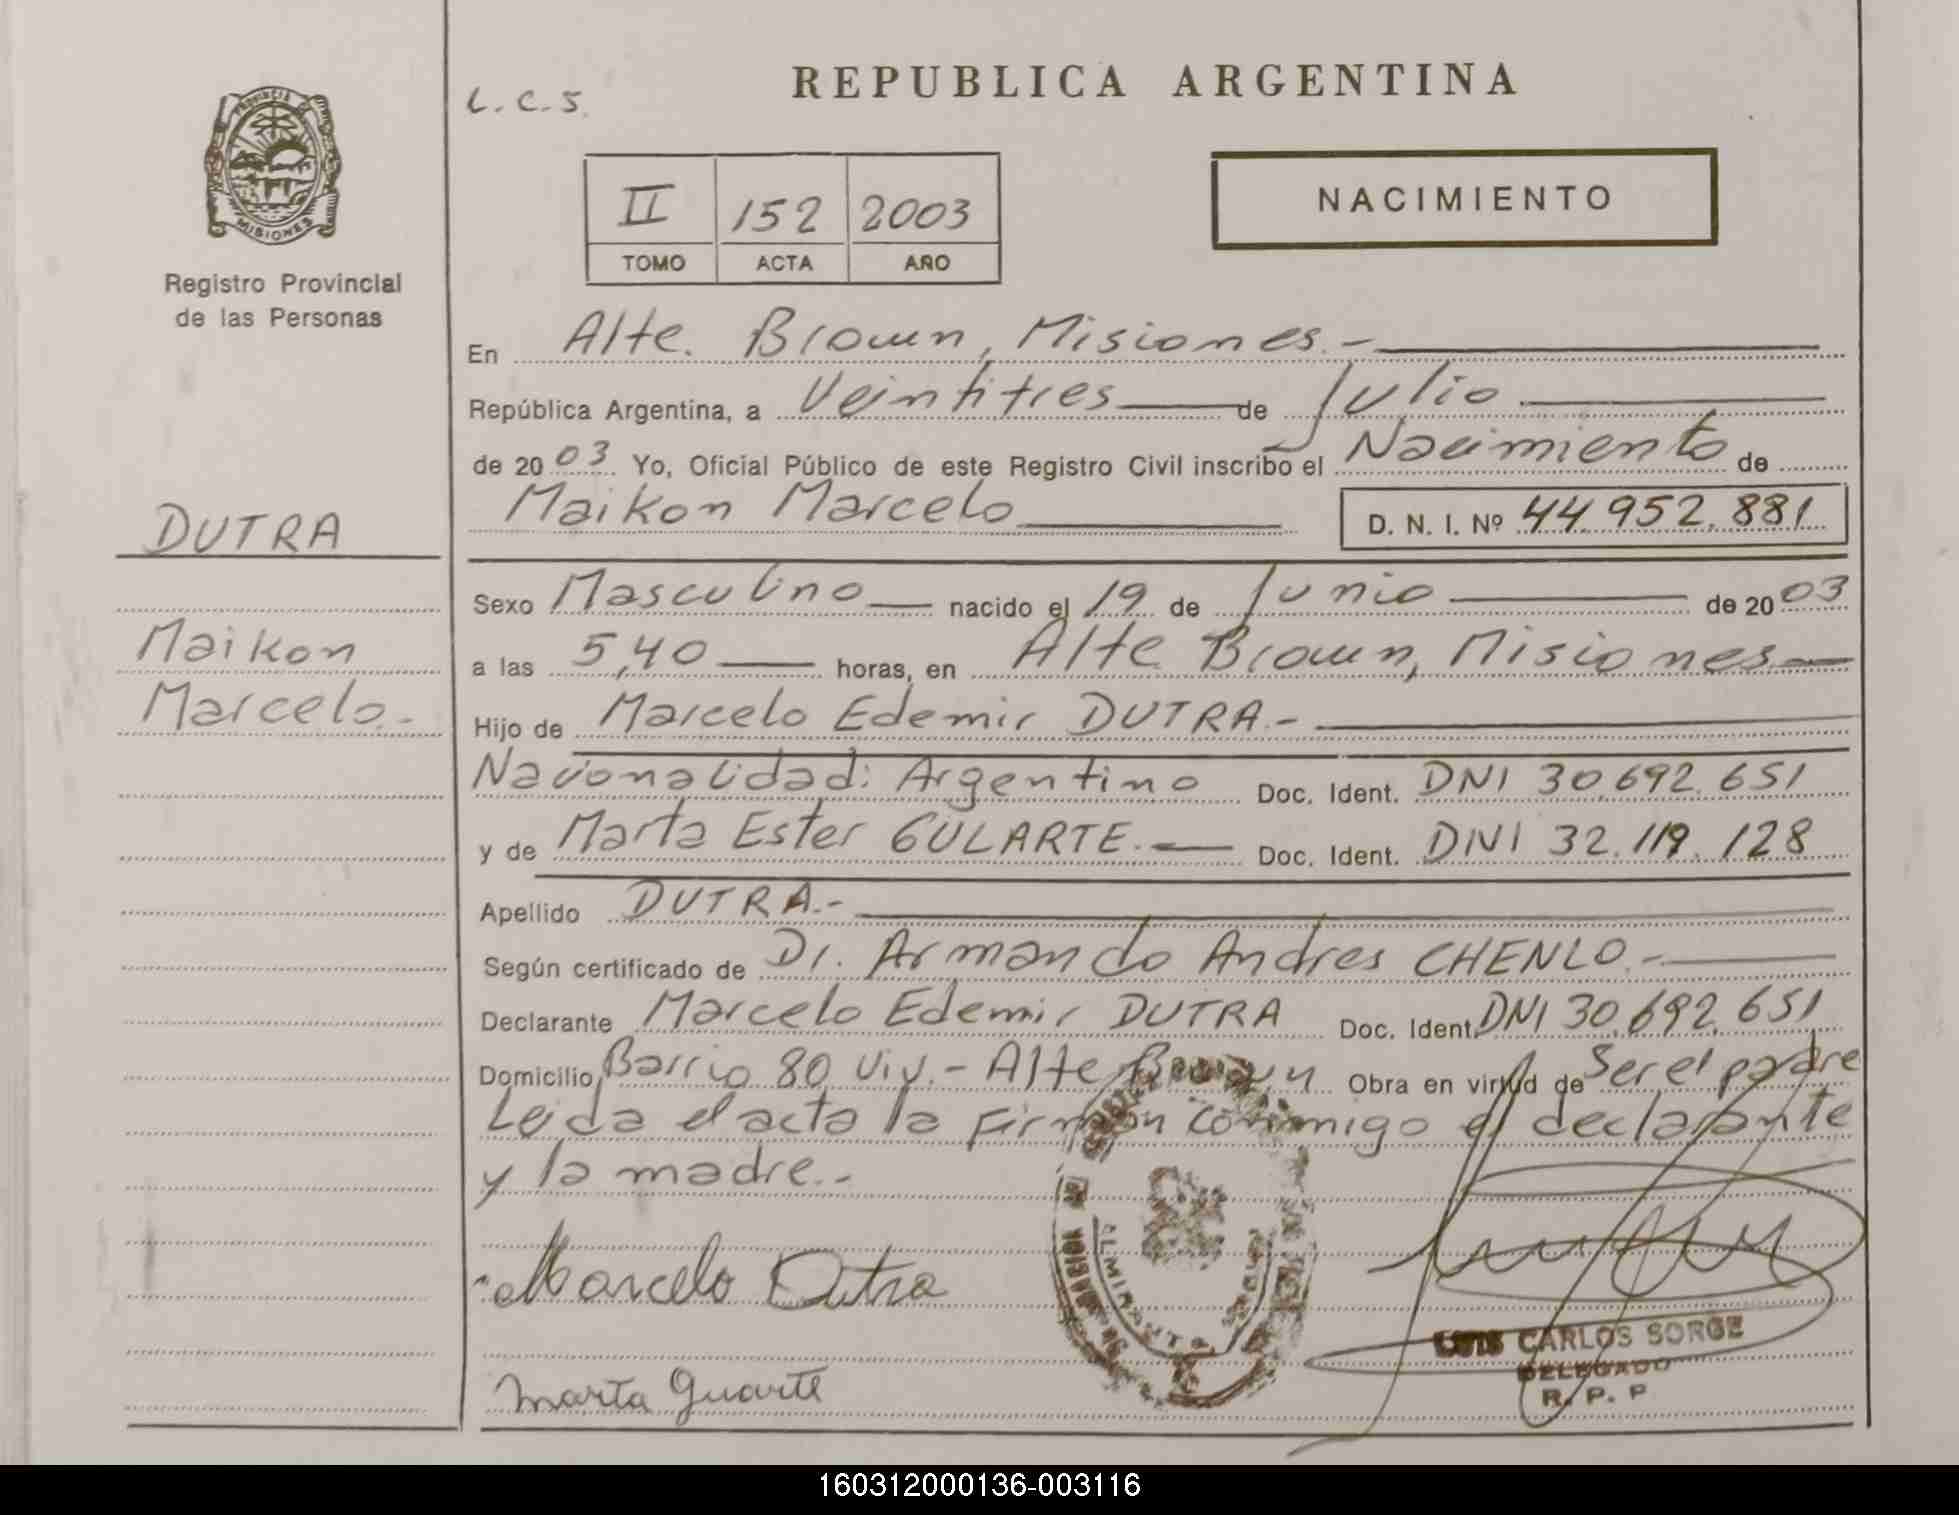 PROVINCIA
MISIONES
Registro Provincial
de las Personas
DUTRA
Maikon
Marcelo.-
L.C.S.
REPUBLICA ARGENTINA
II 152 2003
TOMO ACTA AÑO
NACIMIENTO
En Alte. Brown, Misiones.-
República Argentina, a Veintitres de Julio
de 2003 Yo, Oficial Público de este Registro Civil inscribo el Nacimiento de
Maikon Marcelo D. N. I. Nº 44.952.881
Sexo Masculino nacido el 19 de Junio de 2003
a las 5,40 horas, en Alte. Brown, Misiones.-
Hijo de Marcelo Edemir DUTRA.-
Nacionalidad: Argentino Doc. Ident. DNI 30.692.651
y de Marta Ester GULARTE.- Doc. Ident. DNI 32.119.128
Apellido DUTRA.-
Según certificado de Dr. Armando Andres CHENLO.-
Declarante Marcelo Edemir DUTRA Doc. Ident. DNI 30.692.651
Domicilio Barrio 80 Viv.- Alte Brown Obra en virtud de Ser el padre
Leida el acta la Firman conmigo el declarante
y la madre.-
Marcelo Dutra
Marta Guarte
LUIS CARLOS SORGE
DELEGADO
R. P. P
160312000136-003116